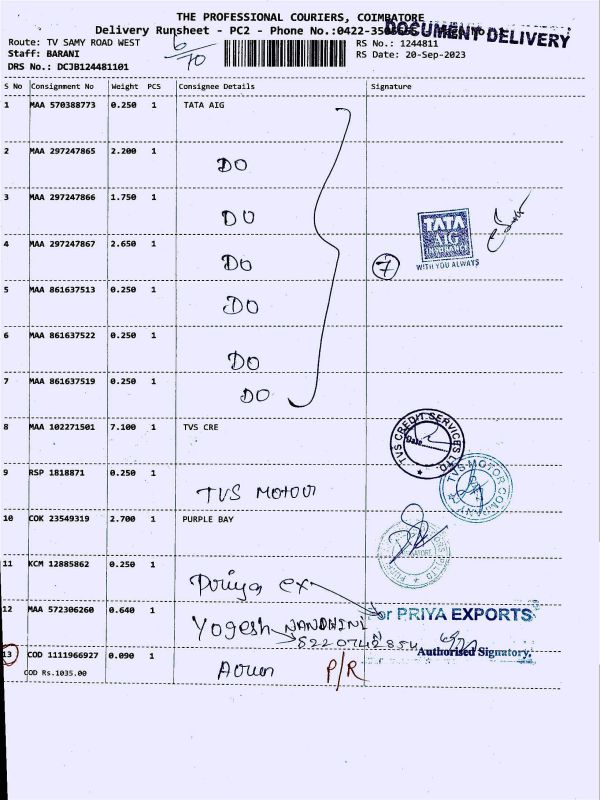 THE PROFESSIONAL COURIERS, COIMBATORE
Delivery Runsheet - PC2 - Phone No.:0422-35
DOCUMENT DELIVERY
Route: TV SAMY ROAD WEST
6/70
RS No.: 1244811
Staff: BARANI
RS Date: 20-Sep-2023
DRS No.: DCJB124481101
S No Consignment No Weight PCS Consignee Details Signature
1 MAA 570388773 0.250 1 TATA AIG
2 MAA 297247865 2.200 1 DO
3 MAA 297247866 1.750 1 DO
TATA AIG INSURANCE
WITH YOU ALWAYS
4 MAA 297247867 2.650 1 DO
7
5 MAA 861637513 0.250 1 DO
6 MAA 861637522 0.250 1 DO
7 MAA 861637519 0.250 1 DO
8 MAA 102271501 7.100 1 TVS CRE
TVS CREDIT SERVICES LTD.
Date
9 RSP 1818871 0.250 1 TVS Motour
TVS MOTOR COMPANY
10 COK 23549319 2.700 1 PURPLE BAY
11 KCM 12885862 0.250 1 Priya ex
For PRIYA EXPORTS
12 MAA 572306260 0.640 1 Yogesh NANDHINI
Authorised Signatory.
13 COD 1111966927 0.090 1 Arun P/R
COD Rs.1035.00